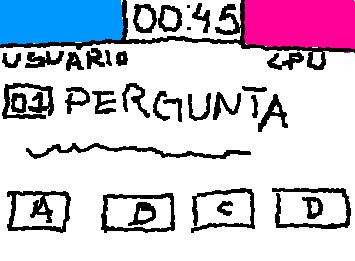 00:45
USUARIO CPU
01 PERGUNTA
A B C D